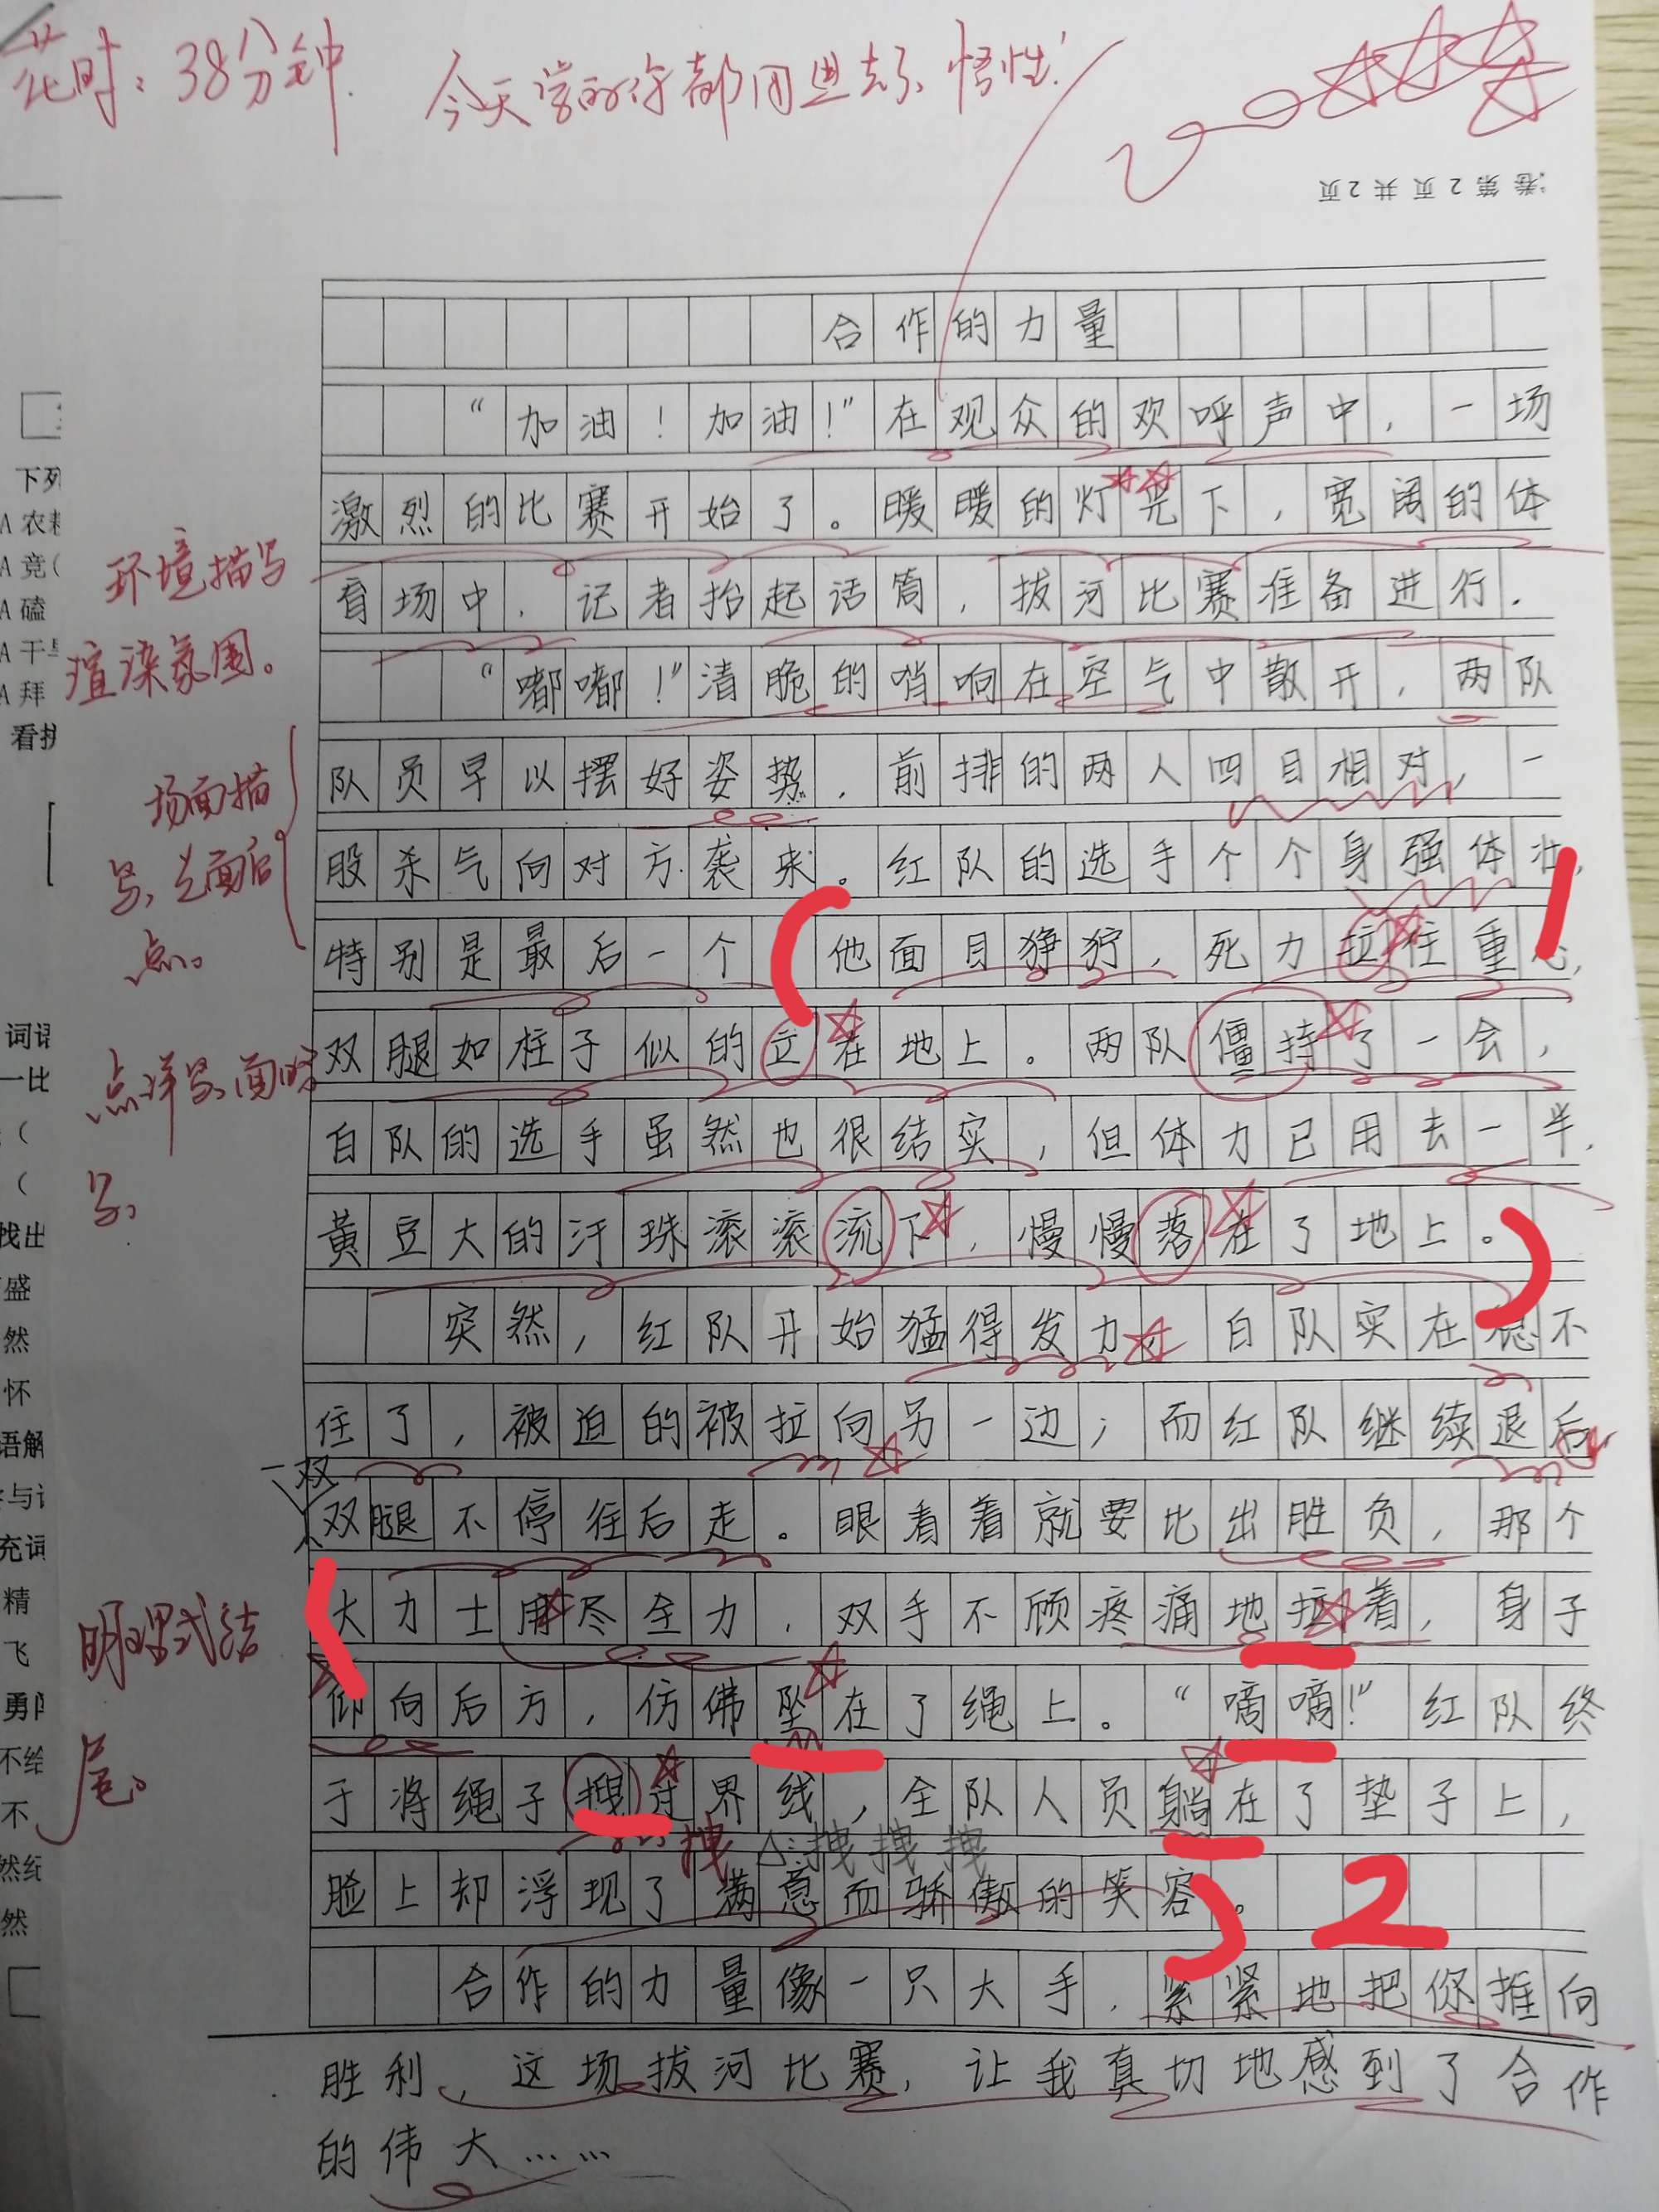 花时：38分钟.
今天学的你都用进去了、悟性！
卷 第 2 页 共 2 页
合作的力量
“加油！加油！”在观众的欢呼声中，一场
激烈的比赛开始了。暖暖的灯光下，宽阔的体
育场中，记者抬起话筒，拔河比赛准备进行．
环境描写
渲染氛围。
“嘟嘟！”清脆的哨响在空气中散开，两队
队员早以摆好姿势．前排的两人四目相对，一
股杀气向对方袭来。红队的选手个个身强体壮，
特别是最后一个 他面目狰狞，死力拉住重心，
场面描
写，
点。
双腿如柱子似的立在地上。两队僵持了一会，
白队的选手虽然也很结实，但体力已用去一半．
黄豆大的汗珠滚滚流下，慢慢落在了地上。
点详写、面略
写、
1
突然，红队开始猛得发力 白队实在稳不
住了，被迫的被拉向另一边；而红队继续退后
一双
双腿不停往后走。眼看着就要比出胜负，那个
大力士用尽全力，双手不顾疼痛地拉着，身子
仰向后方，仿佛坠在了绳上。“嘀嘀！”红队终
于将绳子拽过界线，全队人员躺在了垫子上，
拽 △：拽 拽 拽
脸上却浮现了满意而骄傲的笑容。
2
明理式结
尾。
合作的力量像一只大手，紧紧地把你推向
胜利，这场拔河比赛，让我真切地感到了合作
的伟大……
下列
A 农
A 竞（
A 磕
A 干
A 拜
词语
一比
（
（
找出
盛
然
怀
语解
充词
精
飞
勇
不
然